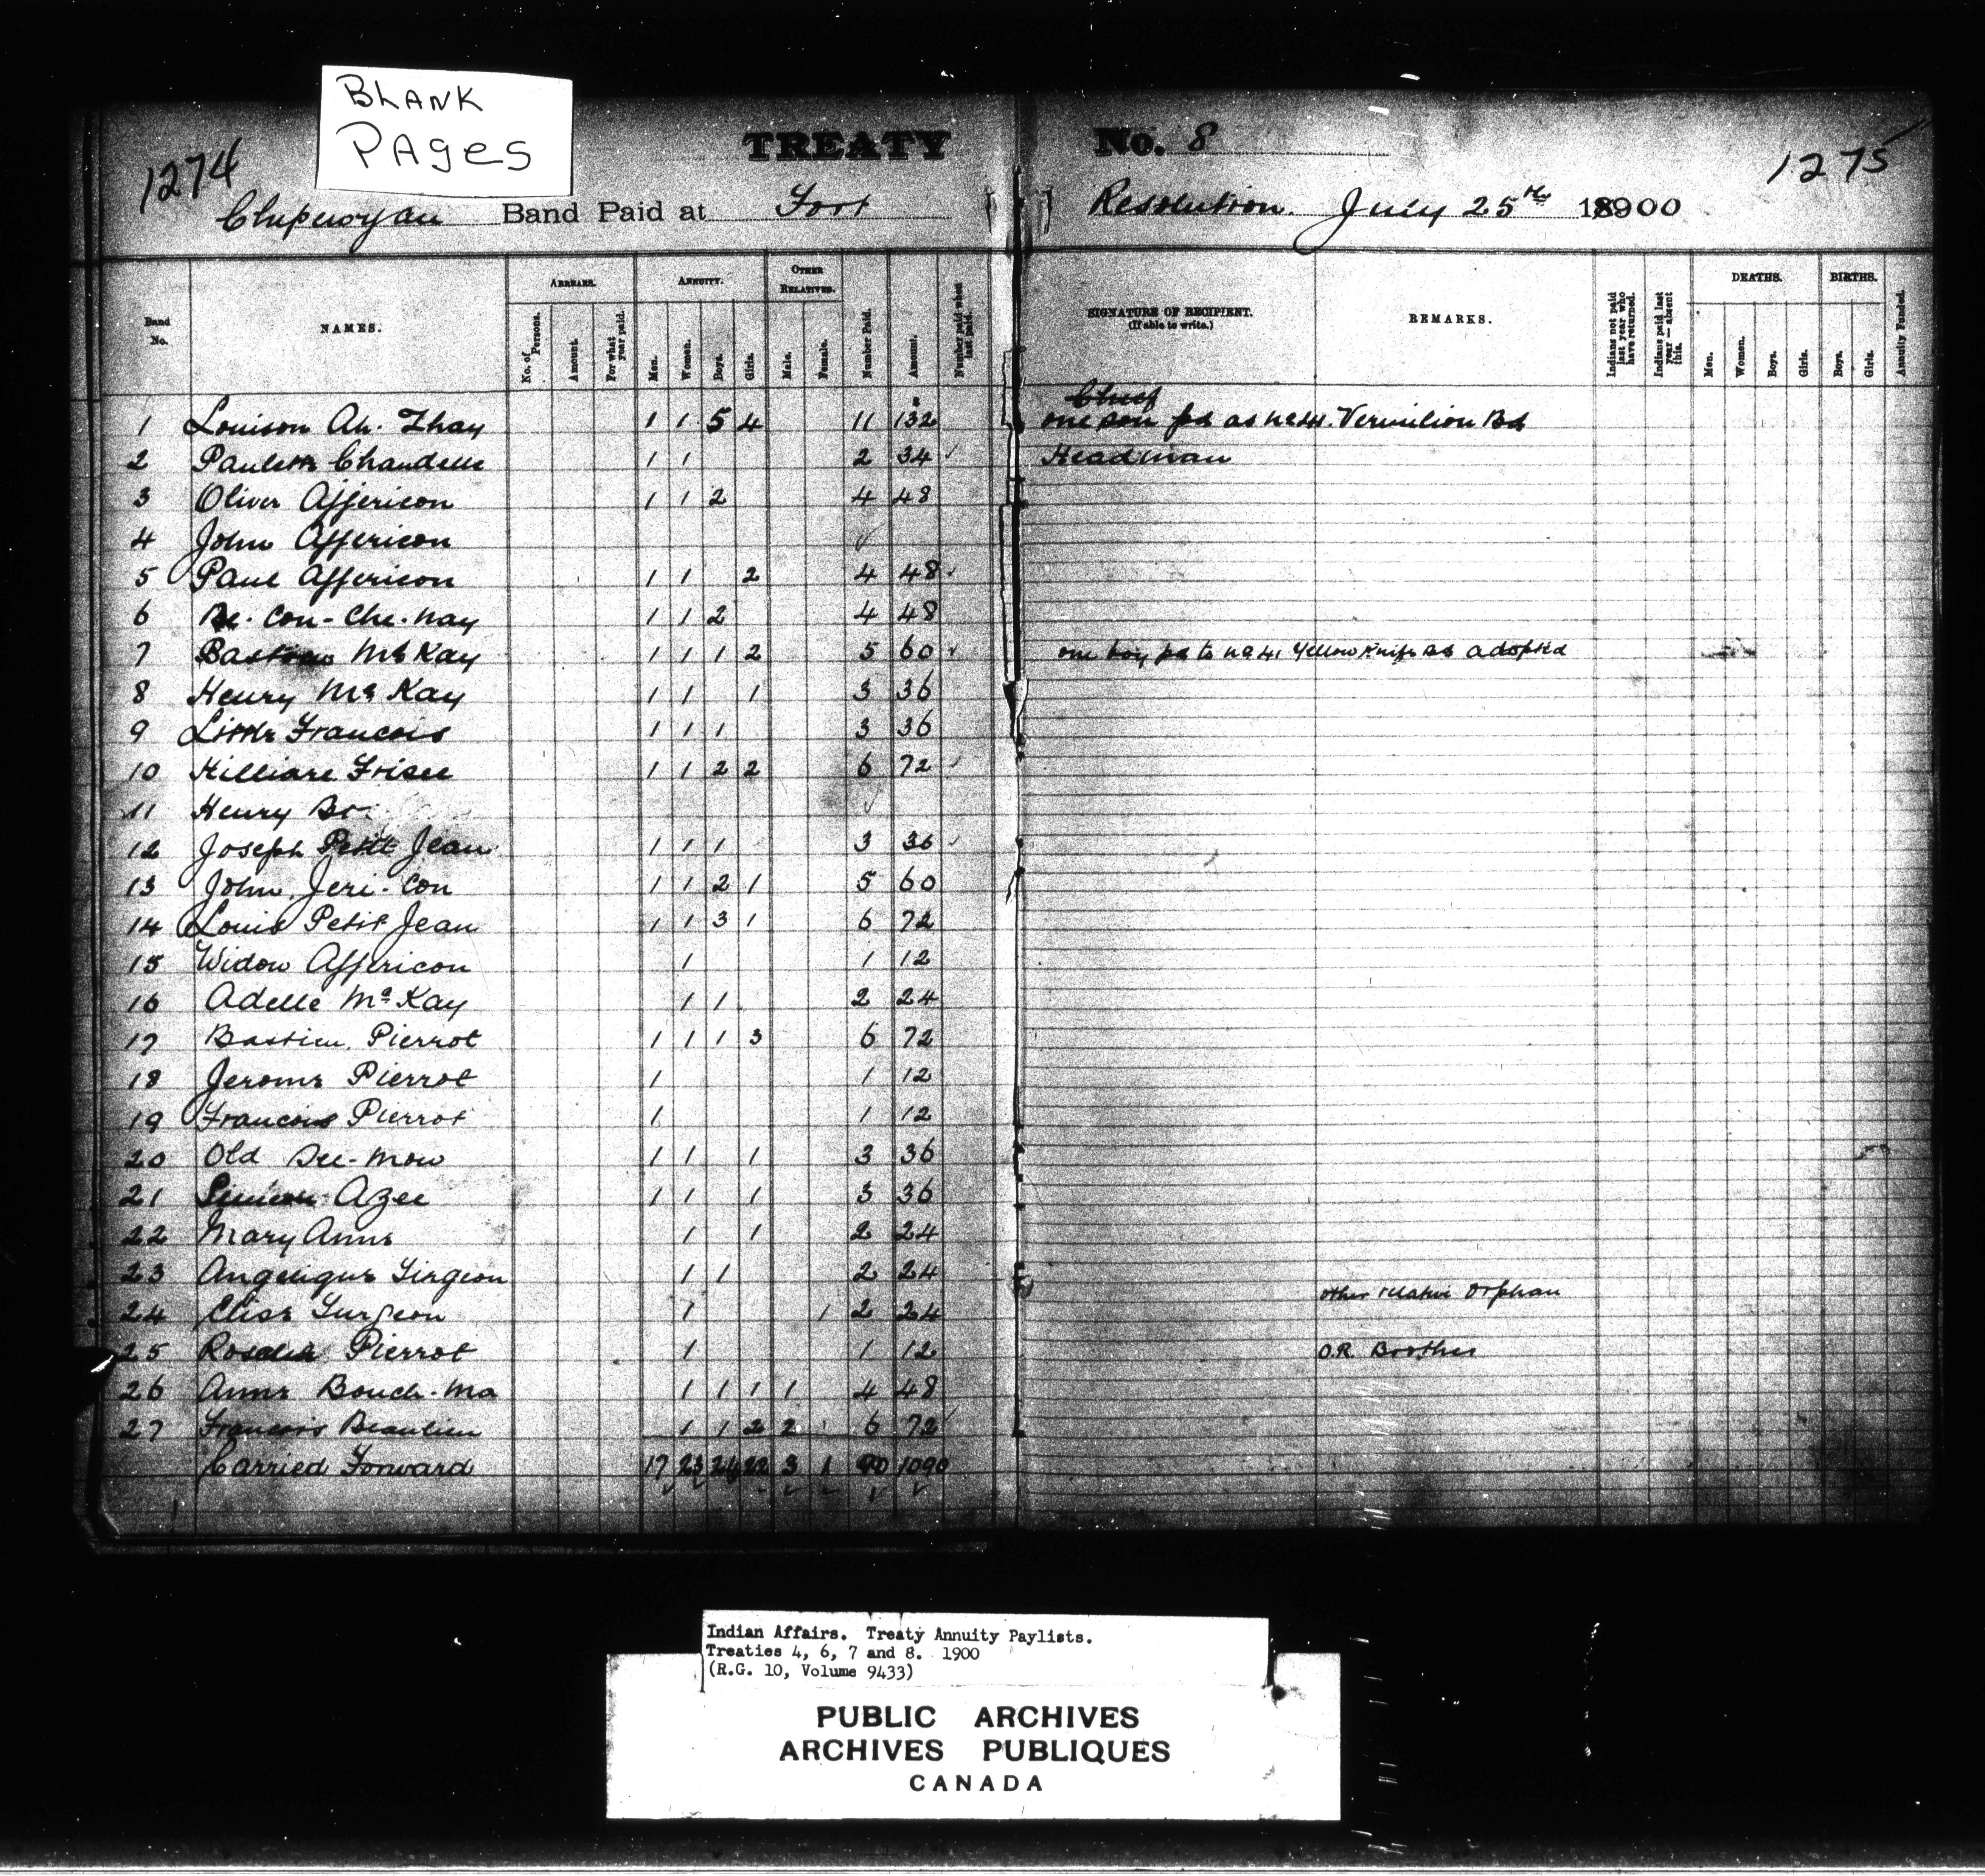 BLANK
PAGES
1274
TREATY No. 8
1275
Chipewyan Band Paid at Fort Resolution. July 25th 1900
Band No.
NAMES.
ARREARS.
No. of Persons.
Amount.
For what year paid.
ANNUITY.
Men.
Women.
Boys.
Girls.
OTHER RELATIVES.
Male.
Female.
Number Paid.
Amount.
Number paid when last paid.
SIGNATURE OF RECIPIENT.
(If able to write.)
REMARKS.
Indians not paid last year who have returned.
Indians paid last year—absent this.
DEATHS.
Men.
Women.
Boys.
Girls.
BIRTHS.
Boys.
Girls.
Annuity Funded.
Chief
1 Louison Ah. Thay 1 1 5 4 11 132 one son pd as no 44. Vermilion Bd
2 Paulette Chandelle 1 1 2 34 Headman
3 Oliver Affericon 1 1 2 4 48
4 John Affericon
5 Paul Affericon 1 1 2 4 48
6 Con-Che-nay 1 1 2 4 48
7 McKay 1 1 1 2 5 60 one boy pd to no 41 Yellow Knife as adopted
8 Henry McKay 1 1 1 3 36
9 Little Francois 1 1 1 3 36
10 Hilliare Frisee 1 1 2 2 6 72
11 Henry Do.
12 Joseph Petit Jean 1 1 1 3 36
13 John Jeri-Con 1 1 2 1 5 60
14 Louis Petit Jean 1 1 3 1 6 72
15 Widow Affericon 1 1 12
16 Adelle McKay 1 1 2 24
17 Bastien Pierrot 1 1 1 3 6 72
18 Jerome Pierrot 1 1 12
19 Francois Pierrot 1 1 12
20 Old Dee-mow 1 1 1 3 36
21 Azee 1 1 1 3 36
22 Mary Anne 1 1 2 24
23 Angelique Surgeon 1 1 2 24
other relative Orphan
24 Elise Surgeon 1 1 2 24
25 Rosalie Pierrot 1 1 12 O.R. Brother
26 Anne Bouch-ma 1 1 1 1 4 48
27 Francois Beaulieu 1 1 2 2 6 72
Carried Forward 17 23 24 22 3 1 90 1090
Indian Affairs. Treaty Annuity Paylists.
Treaties 4, 6, 7 and 8. 1900
(R.G. 10, Volume 9433)
PUBLIC ARCHIVES
ARCHIVES PUBLIQUES
CANADA